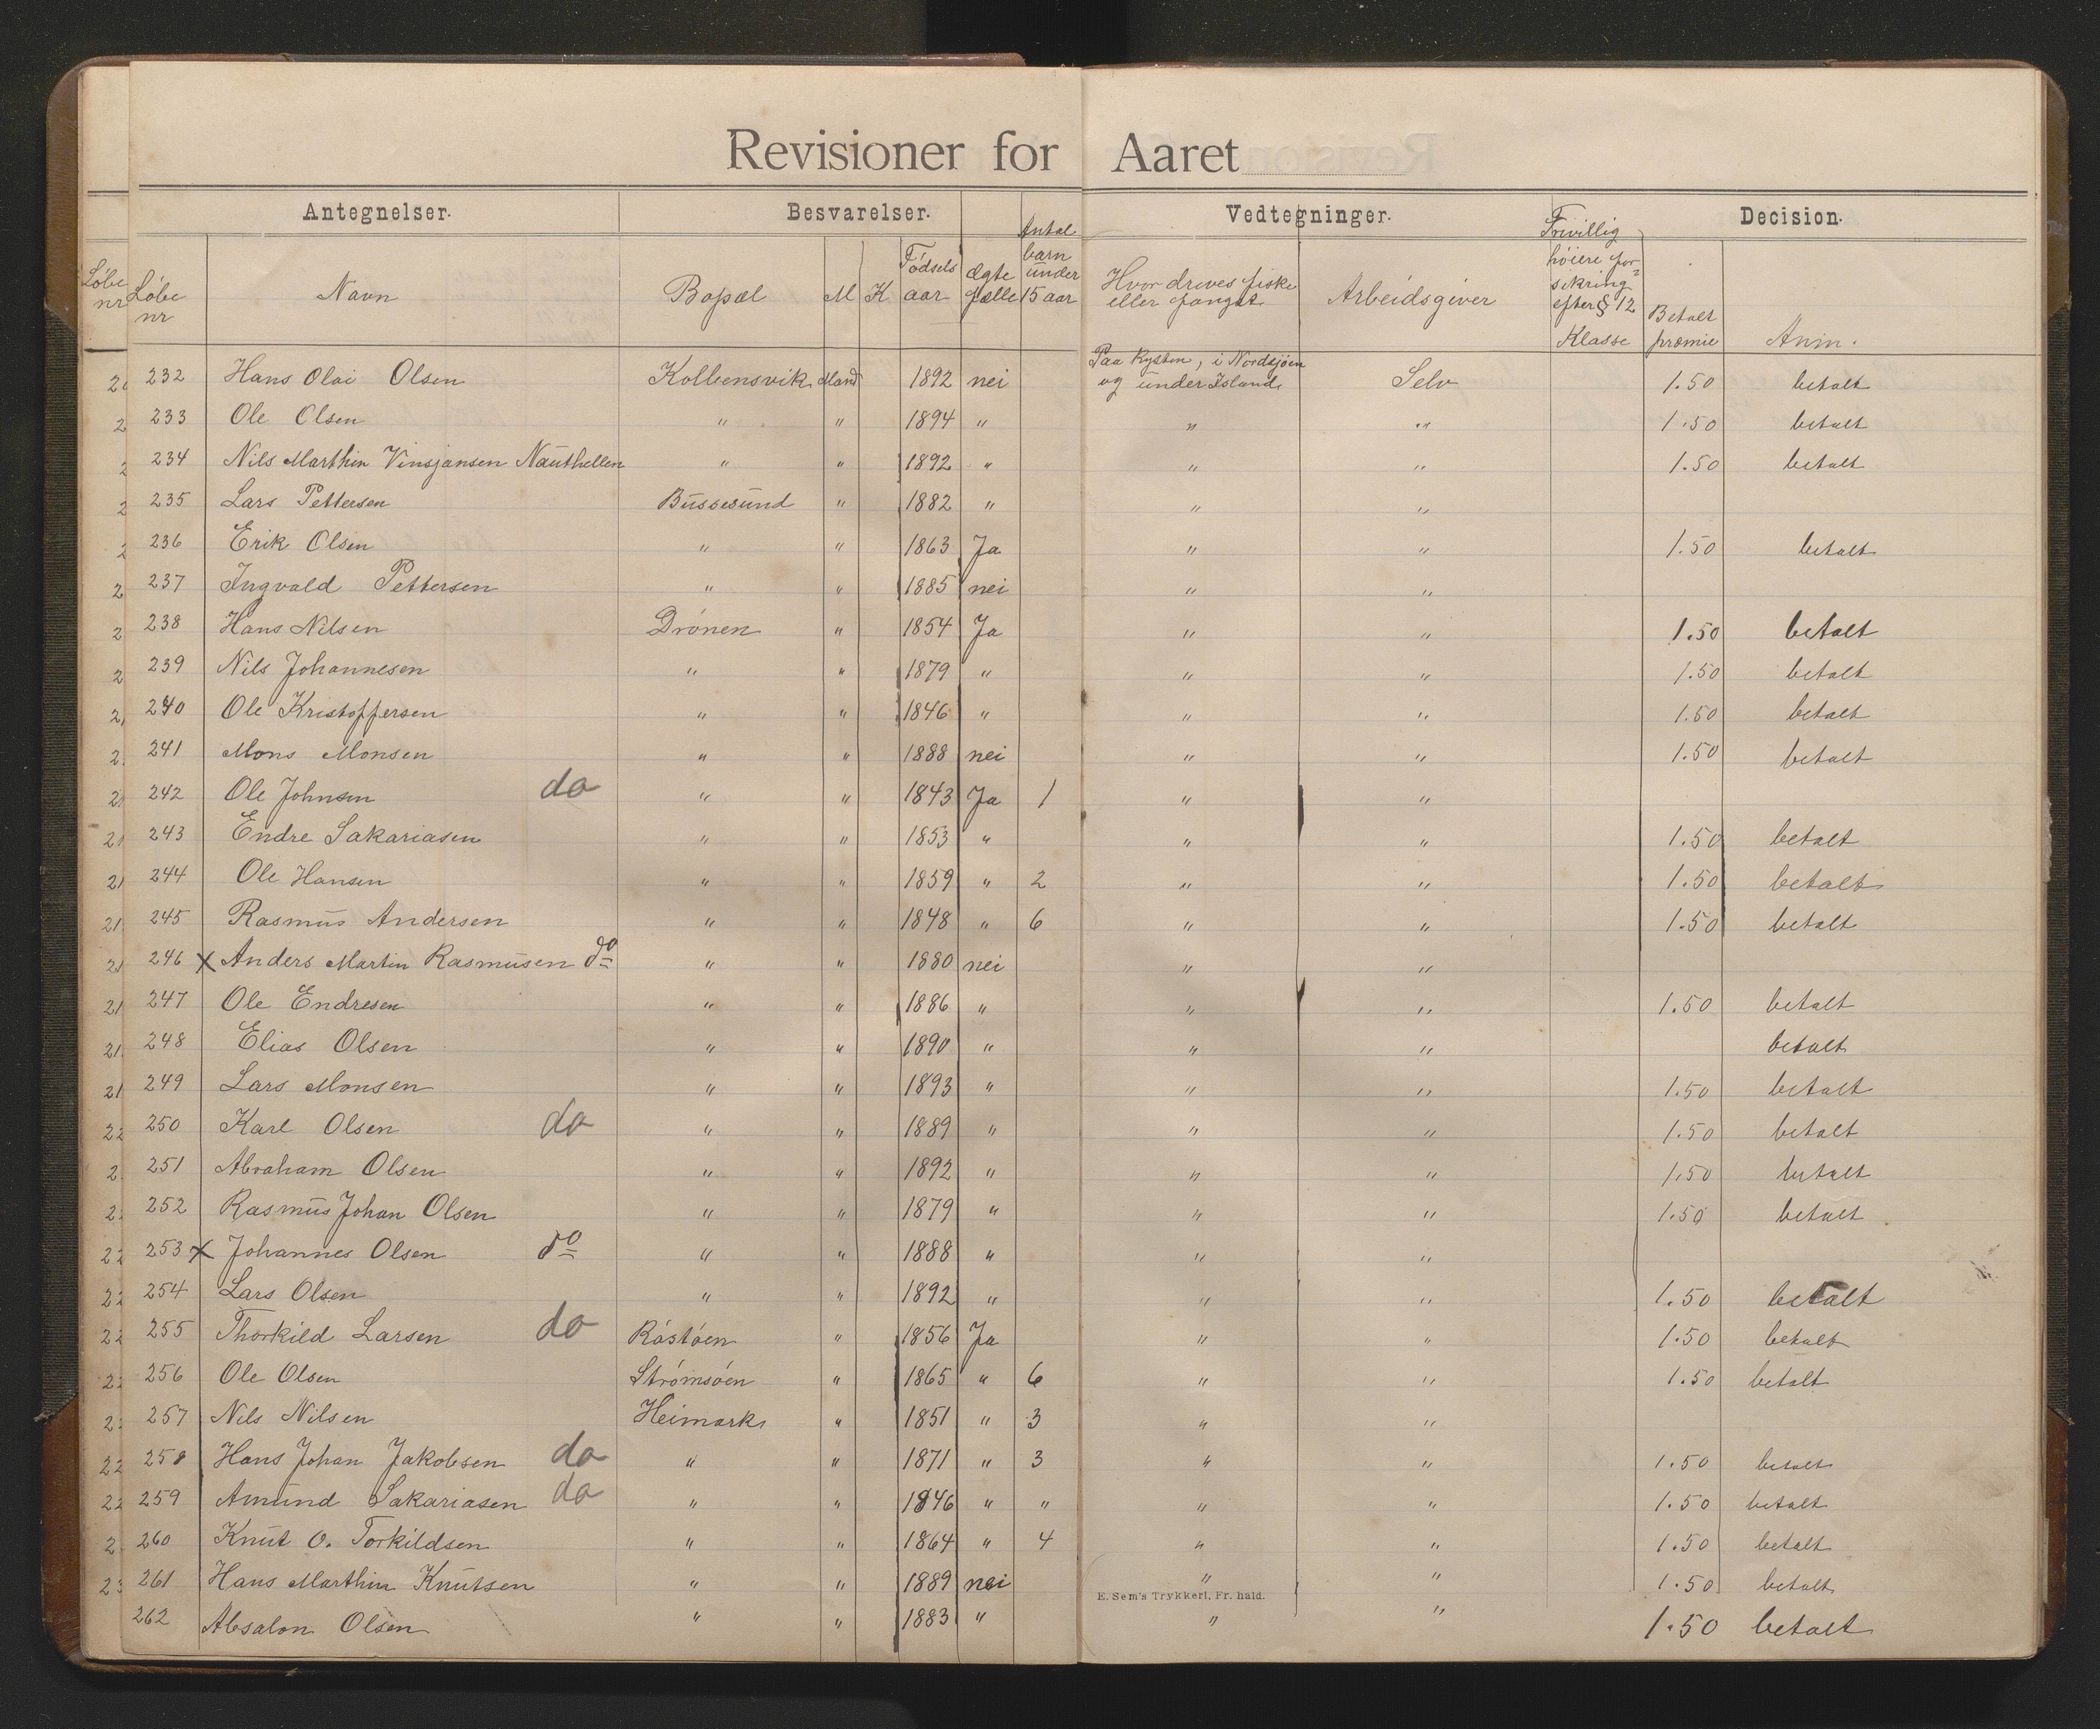 Revisioner for Aaret
Antegnelser. Besvarelser. Vedtegninger. Decision.
Løbe nr Løbe nr Navn Bopæl M K Fødsels aar ægte fælle Antal barn under 15 aar Hvor drives fiske eller fangst Arbeidsgiver Frivillig høiere for- sikring efter § 12 Klasse Betalt præmie Anm.
232 Hans Oloi Olsen Kolbensvik Mand 1892 nei Paa Kysten, i Nordsjøen og under Island Selv 1.50 betalt
233 Ole Olsen " " 1894 " " " 1.50 betalt
234 Nils Marthin Vinsjansen Nauthellen " " 1892 " " " 1.50 betalt
235 Lars Pettersen Bussesund " 1882 " " "
236 Erik Olsen " " 1863 Ja " " 1.50 betalt
237 Ingvald Pettersen " " 1885 nei " "
238 Hans Nilsen Drönen " 1854 Ja " " 1.50 betalt
239 Nils Johannesen " " 1879 " " " 1.50 betalt
240 Ole Kristoffersen " " 1846 " " " 1.50 betalt
241 Mons Monsen " " 1888 nei " " 1.50 betalt
242 Ole Johnsen do " " 1843 Ja 1 " "
243 Endre Sakariasen " " 1853 " " " 1.50 betalt
244 Ole Hansen " " 1859 " 2 " " 1.50 betalt
245 Rasmus Andersen " " 1848 " 6 " " 1.50 betalt
246 x Anders Martin Rasmusen do " " 1880 nei " "
247 Ole Endresen " " 1886 " " " 1.50 betalt
248 Elias Olsen " " 1890 " " " betalt
249 Lars Monsen " " 1893 " " " 1.50 betalt
250 Karl Olsen do " " 1889 " " " 1.50 betalt
251 Abraham Olsen " " 1892 " " " 1.50 betalt
252 Rasmus Johan Olsen " " 1879 " " " 1.50 betalt
253 x Johannes Olsen do " " 1888 " " "
254 Lars Olsen " " 1892 " " " 1.50 betalt
255 Thorkild Larsen do Röstöen " 1856 Ja " " 1.50 betalt
256 Ole Olsen Strömsöen " 1865 " 6 " " 1.50 betalt
257 Nils Nilsen Heimark " 1851 " 3 " "
258 Hans Johan Jakobsen do " " 1871 " 3 " " 1.50 betalt
259 Amund Sakariasen do " " 1846 " " " " 1.50 betalt
260 Knut O. Torkildsen " " 1864 " 4 " " 1.50 betalt
261 Hans Marthin Knutsen " " 1889 nei " " 1.50 betalt
E. Sem's Trykkeri, Fr. hald.
262 Absalon Olsen " " 1883 " " " 1.50 betalt